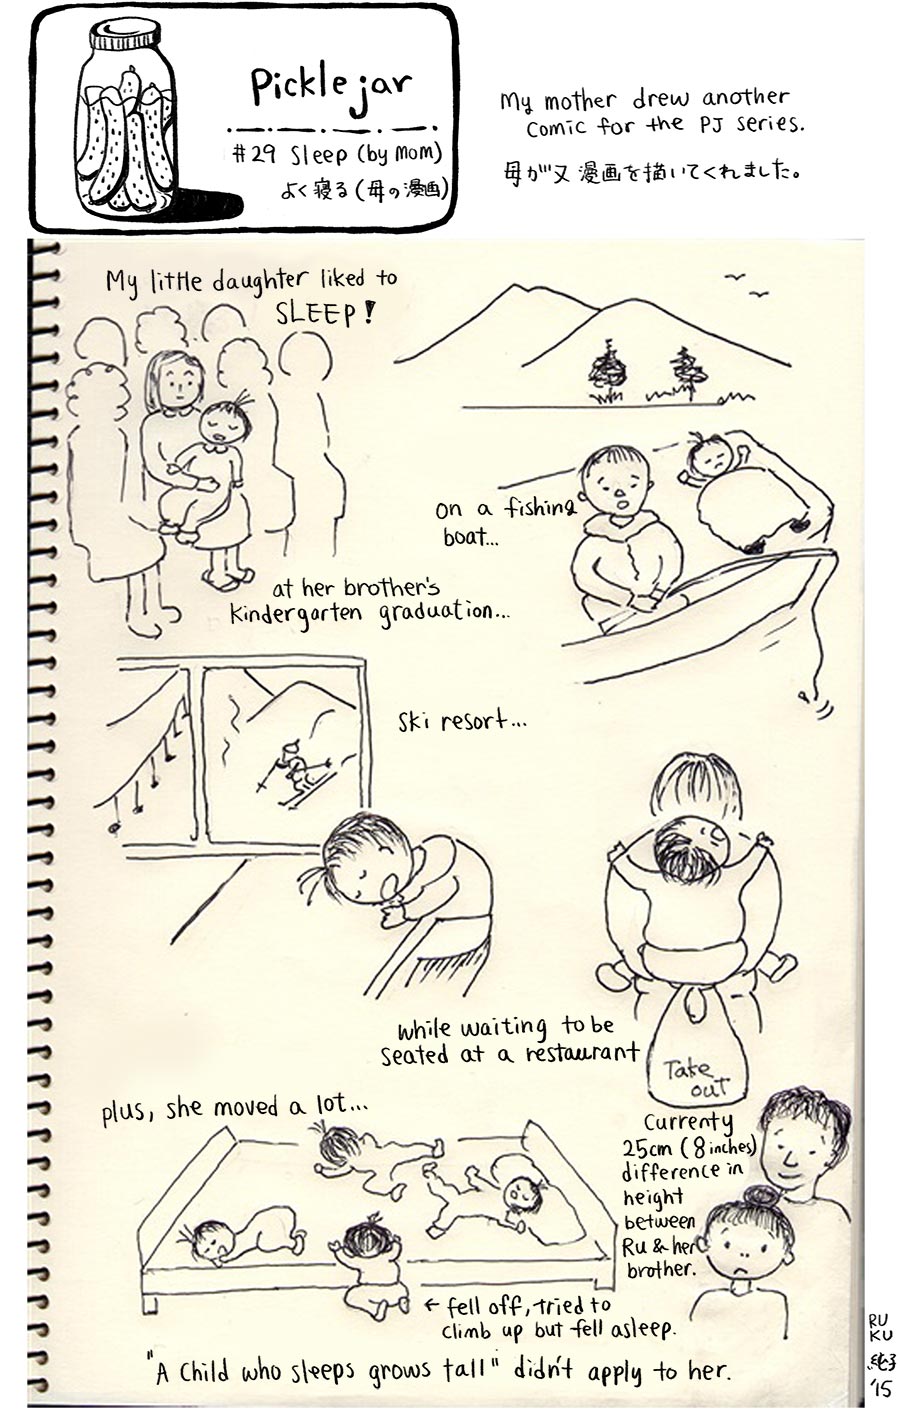 Pickle jar
#29 Sleep (by Mom)
よく寝る(母の漫画)
My mother drew another
comic for the PJ series.
母が又漫画を描いてくれました。
My little daughter liked to
SLEEP!
at her brother's
kindergarten graduation...
on a fishing
boat...
ski resort...
while waiting to be
seated at a restaurant
Take
out
plus, she moved a lot...
← fell off, tried to
climb up but fell asleep.
Currenty
25cm (8 inches)
difference in
height
between
Ru & her
brother.
"A child who sleeps grows tall" didn't apply to her.
RU
KU
'15